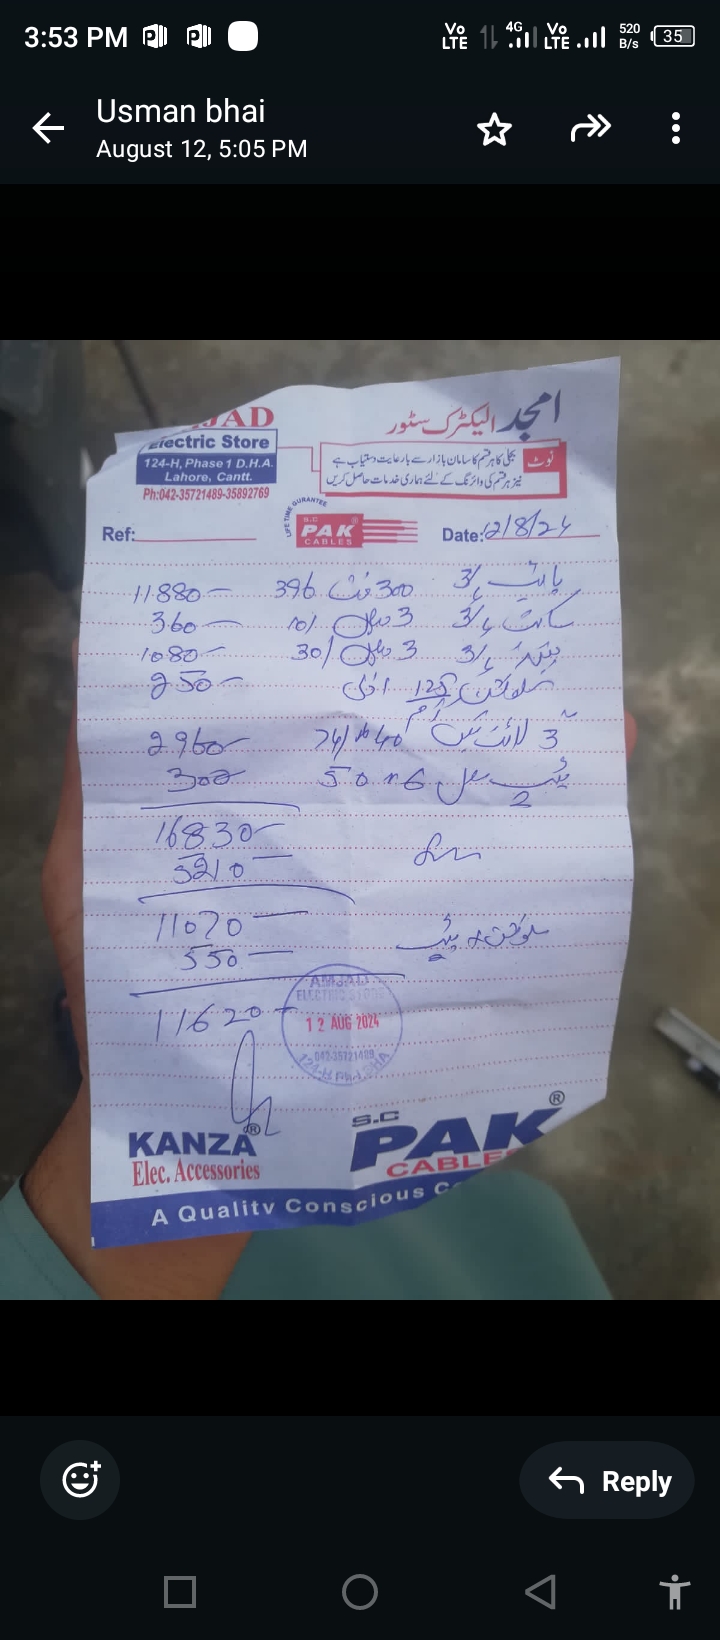 3:53 PM
Vo LTE 4G Vo LTE 520 B/s 35
Usman bhai
August 12, 5:05 PM
JAD
Electric Store
124-H, Phase 1 D.H.A.
Lahore, Cantt.
Ph:042-35721489-35892769
امجد الیکٹرک سٹور
نوٹ
بجلی کا ہر قسم کا سامان بازار سے بارعایت دستیاب ہے
نیز ہر قسم کی وائرنگ کے لئے ہماری خدمات حاصل کریں
Ref:
LIFE TIME GURANTEE
S.C PAK ® CABLES
Date: 12/8/24
پائپ 3/4 300 فٹ 396 11880
3/4 3 10/ 360
3/4 3 30/ 1080
سلوشن 125 250
3 لائٹ 40 74/ 2960
ٹیپ 6 50 300
16830
11070
سلوشن + ٹیپ 550
11620
AMJAD
ELECTRIC STORE
12 AUG 2024
042-35721489
124-H PH-I DHA
KANZA ®
Elec. Accessories
S.C PAK ®
CABLE
A Quality Conscious C
Reply